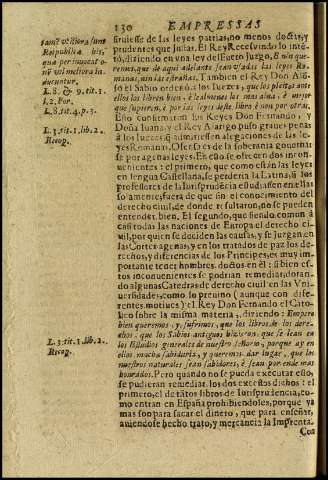 130 EMPRESSAS
siruiesse de las leyes patrias, no menos doctas, y
prudentes que justas. El Rey Recesvindo lo inten-
tò, diziendo en vna ley del Fuero Juzgo, E nin que-
remos, que de aqui adelante sean vsadas las leyes Ro-
manas, nin las estrañas. Tambien el Rey Don Alon-
so el Sabio ordenò a los Iuezes, que los pleitos ante
ellos los libren bien, è lealmente lo mas aina, è mejor
que supieren, è por las leyes deste libro è non por otras.
Esto confirmaron los Reyes Don Fernando, y
Doña Iuana, y el Rey Alarigo puso graues penas
à los Iuezes q̃ admitiessen alegaciones de las le-
yes Romanas. Ofensa es de la soberania gouernar-
se por agenas leyes. En esto se ofrecen dos incon-
uenientes: el primero, que como estàn las leyes
en lengua Castellana, se perderia la Latina, si los
professores de la Iurisprudencia estudiassen en ellas
solamente, fuera de que sin el conocimiento del
derecho ciuil, de donde resultaron, no se pueden
entender bien. El segundo, que siendo comun à
casi todas las naciones de Europa el derecho ci-
uil, por quien se deciden las causas, y se juzgan en
las Cortes agenas, y en los tratados de paz los de-
rechos, y diferencias de los Principes, es muy im-
portante tener hombres doctos en èl: si bien es-
tos inconuenientes se podrian remediar, doran-
do algunas Catedras de derecho ciuil en las Vni-
uersidades, como lo preuino (aunque con dife-
rentes motiuos) el Rey Don Fernando el Cato-
lico sobre la misma materia, diziendo: Empero
bien queremos, y sufrimos, que los libros de los dere-
chos, que los Sabios antiguos hizieron, que se lean en
los Estudios generales de nuestro señorio, porque ay en
ellos mucha sabiduria, y queremos dar lugar, que los
nuestros naturales sean sabidores, è sean por ende mas
honrados. Pero quando no se pueda executar esto,
se pudieran remediar los dos excessos dichos: el
primero, el de tãtos libros de Iurisprudencia, co-
mo entran en España prohibiendoles, porque ya
mas son para sacar el dinero, que para enseñar,
auiendose hecho trato, y mercancia la Imprenta.
Con
L. 8. & 9. tit. 1.
l. 2. For.
L. 8. tit. 4. p. 3.
L. 3. tit. 1. lib. 2.
Recop.
L. 3. tit. 1. lib. 2.
Recop.